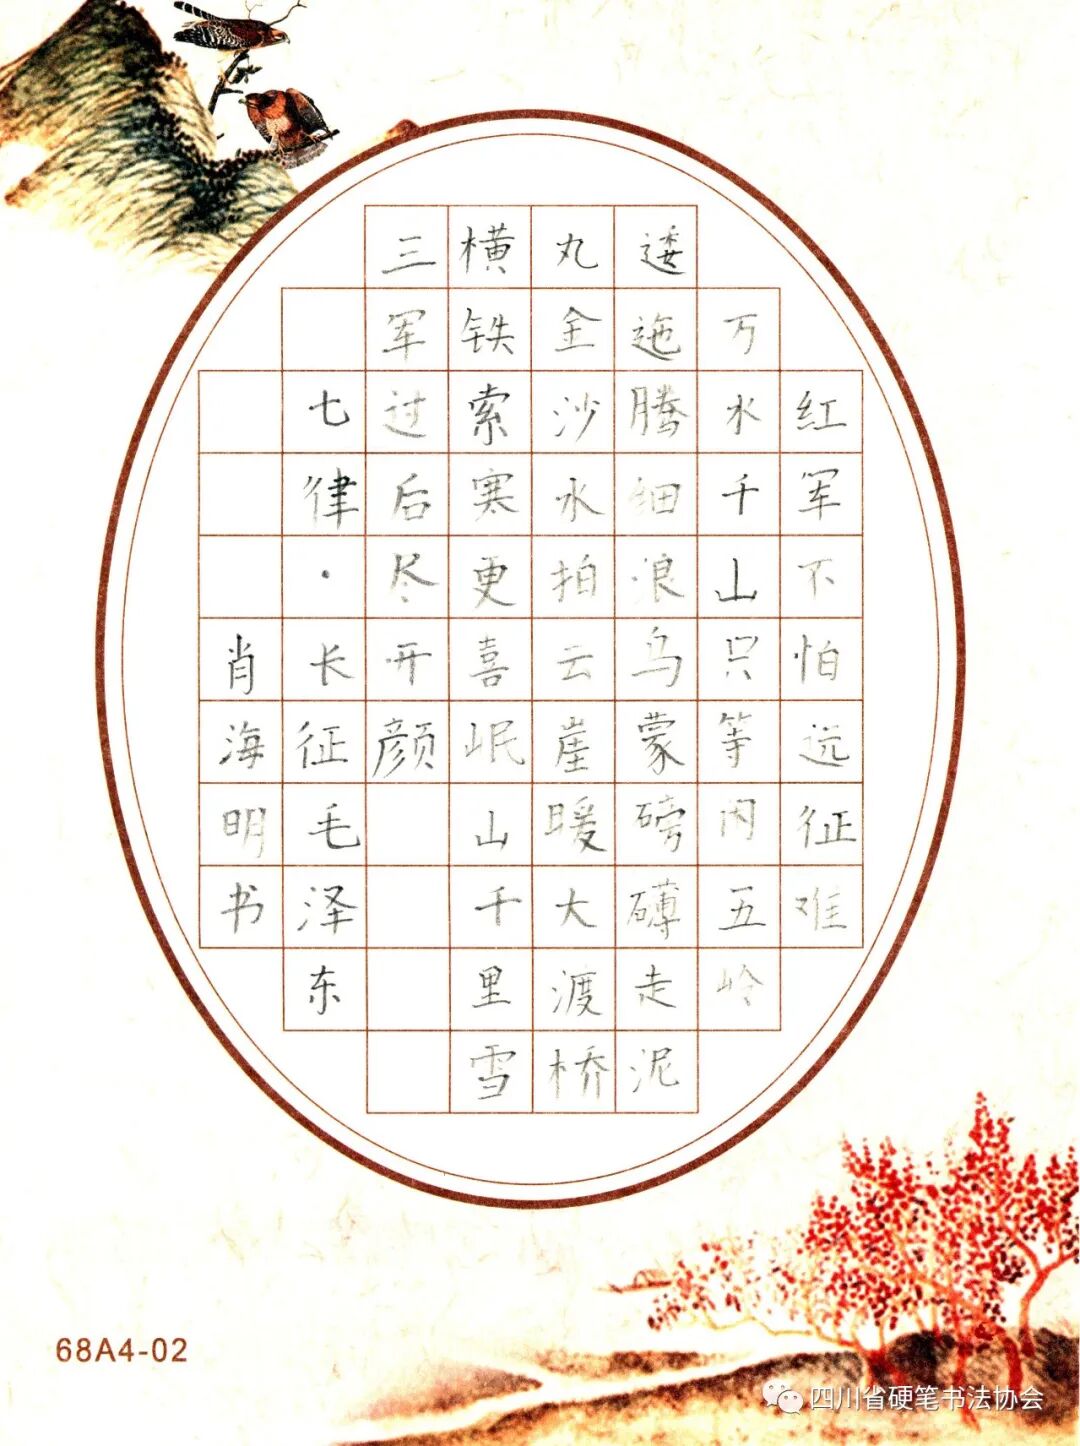 红军不怕远征难
万水千山只等闲五岭
逶迤腾细浪乌蒙磅礴走泥
丸金沙水拍云崖暖大渡桥
横铁索寒更喜岷山千里雪
三军过后尽开颜
七律·长征毛泽东
肖海明书
68A4-02
四川省硬笔书法协会